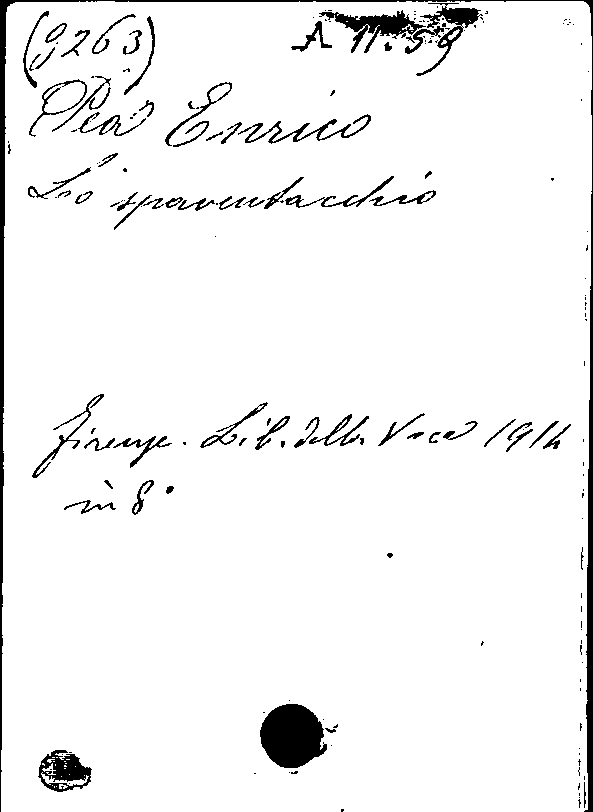 (9263) A 11.59
Pea Enrico
Lo spaventacchio
Firenze. Lib. della Voce 1914
in 8°